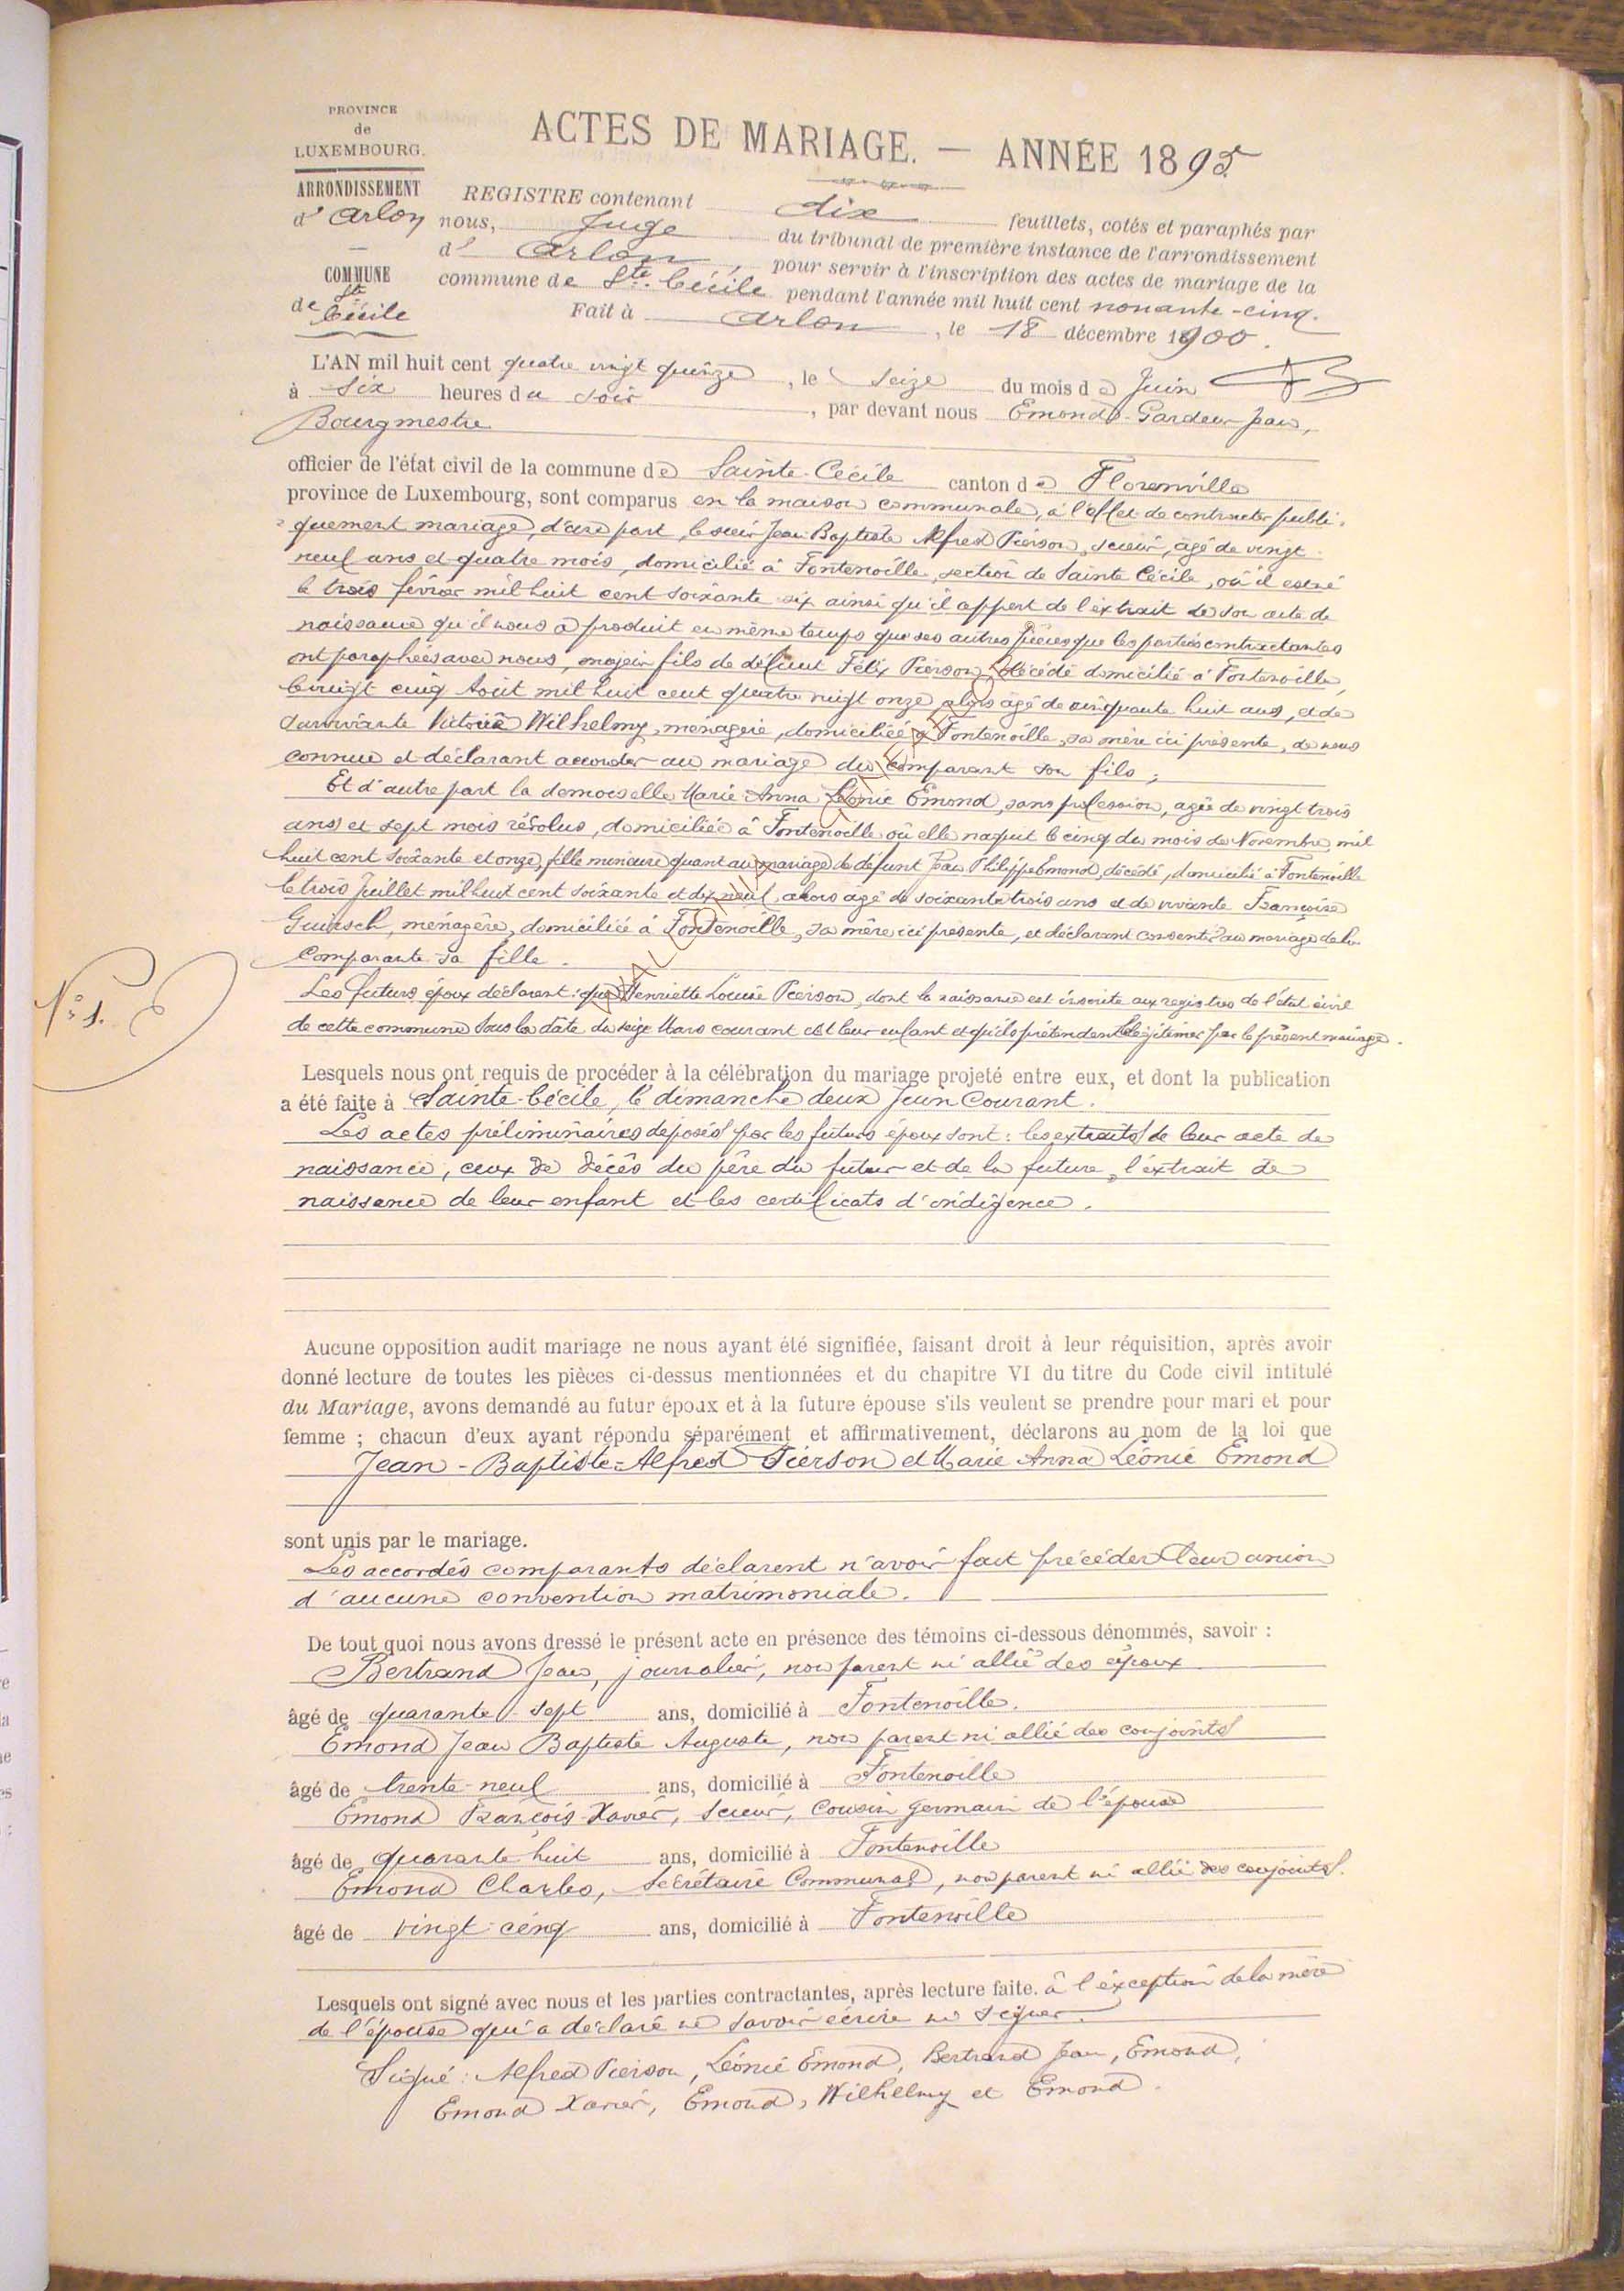 PROVINCE
de
LUXEMBOURG.
ARRONDISSEMENT
d'Arlon
COMMUNE
de Ste Cécile
ACTES DE MARIAGE. — ANNÉE 1895
REGISTRE contenant dix feuillets, cotés et paraphés par
nous, Juge du tribunal de première instance de l'arrondissement
d' Arlon, pour servir à l'inscription des actes de mariage de la
commune de Ste. Cécile pendant l'année mil huit cent nonante-cinq.
Fait à Arlon, le 18 décembre 1900.
L'AN mil huit cent quatre vingt quinze, le seize du mois de Juin
à six heures du soir, par devant nous Emond-Gardeur Jean,
Bourgmestre
officier de l'état civil de la commune de Sainte-Cécile canton de Florenville
province de Luxembourg, sont comparus en la maison communale, à l'effet de contracter publi-
quement mariage, d'une part, le sieur Jean-Baptiste Alfred Pierson, scieur, âgé de vingt-
neuf ans et quatre mois, domicilié à Fontenoille, section de Sainte Cécile, où il est né
le trois février mil huit cent soixante six ainsi qu'il appert de l'extrait de son acte de
naissance qu'il nous a produit en même temps que ses autres pièces que les parties contractantes
ont paraphées avec nous, majeur fils de défunt Félix Pierson, décédé domicilié à Fontenoille,
le vingt cinq Août mil huit cent quatre vingt onze, alors âgé de cinquante huit ans, et de
survivante Victoire Wilhelmy, ménagère, domiciliée à Fontenoille, sa mère ici présente, de nous
connue et déclarant accorder au mariage du comparant son fils;
Et d'autre part la demoiselle Marie Anna Léonie Emond, sans profession, agée de vingt trois
ans et sept mois révolus, domiciliée à Fontenoille où elle naquit le cinq du mois de Novembre mil
huit cent soixante et onze, fille mineure quant au mariage de défunt Jean Philippe Emond, décédé, domicilié à Fontenoille
le trois Juillet mil huit cent soixante et dix neuf, alors agé de soixante trois ans et de vivante Françoise
ménagère, domiciliée à Fontenoille, sa mère ici présente, et déclarant consentir au mariage de la
comparante sa fille.
N° 1.
Les futurs époux déclarent: que Henriette Louise Pierson, dont la naissance est inscrite aux registres de l'état civil
de cette commune sous la date du seize Mars courant est leur enfant et qu'ils prétendent légitimer par le présent mariage.
Lesquels nous ont requis de procéder à la célébration du mariage projeté entre eux, et dont la publication
a été faite à Sainte-Cécile, le dimanche deux Juin courant.
Les actes préliminaires déposés par les futurs époux sont: les extraits de leur acte de
naissance, ceux de décès du père du futur et de la future, l'extrait de
naissance de leur enfant et les certificats d'indigence.
Aucune opposition audit mariage ne nous ayant été signifiée, faisant droit à leur réquisition, après avoir
donné lecture de toutes les pièces ci-dessus mentionnées et du chapitre VI du titre du Code civil intitulé
du Mariage, avons demandé au futur époux et à la future épouse s'ils veulent se prendre pour mari et pour
femme ; chacun d'eux ayant répondu séparément et affirmativement, déclarons au nom de la loi que
Jean-Baptiste-Alfred Pierson et Marie Anna Léonie Emond
sont unis par le mariage.
Les accordés comparants déclarent n'avoir fait précéder leur union
d'aucune convention matrimoniale.
De tout quoi nous avons dressé le présent acte en présence des témoins ci-dessous dénommés, savoir :
Bertrand Jean, journalier, non parent ni allié des époux
âgé de quarante-sept ans, domicilié à Fontenoille.
Emond Jean Baptiste Auguste, non parent ni allié des conjoints
âgé de trente-neuf ans, domicilié à Fontenoille
Emond François-Xavier, scieur, cousin germain de l'épouse
âgé de quarante huit ans, domicilié à Fontenoille
Emond Charles, Secrétaire Communal, non parent ni allié des conjoints.
âgé de vingt-cinq ans, domicilié à Fontenoille
Lesquels ont signé avec nous et les parties contractantes, après lecture faite. à l'exception de la mère
de l'épouse qui a déclaré ne savoir écrire ni signer.
Signé: Alfred Pierson, Léonie Emond, Bertrand Jean, Emond,
Emond Xavier, Emond, Wilhelmy et Emond.